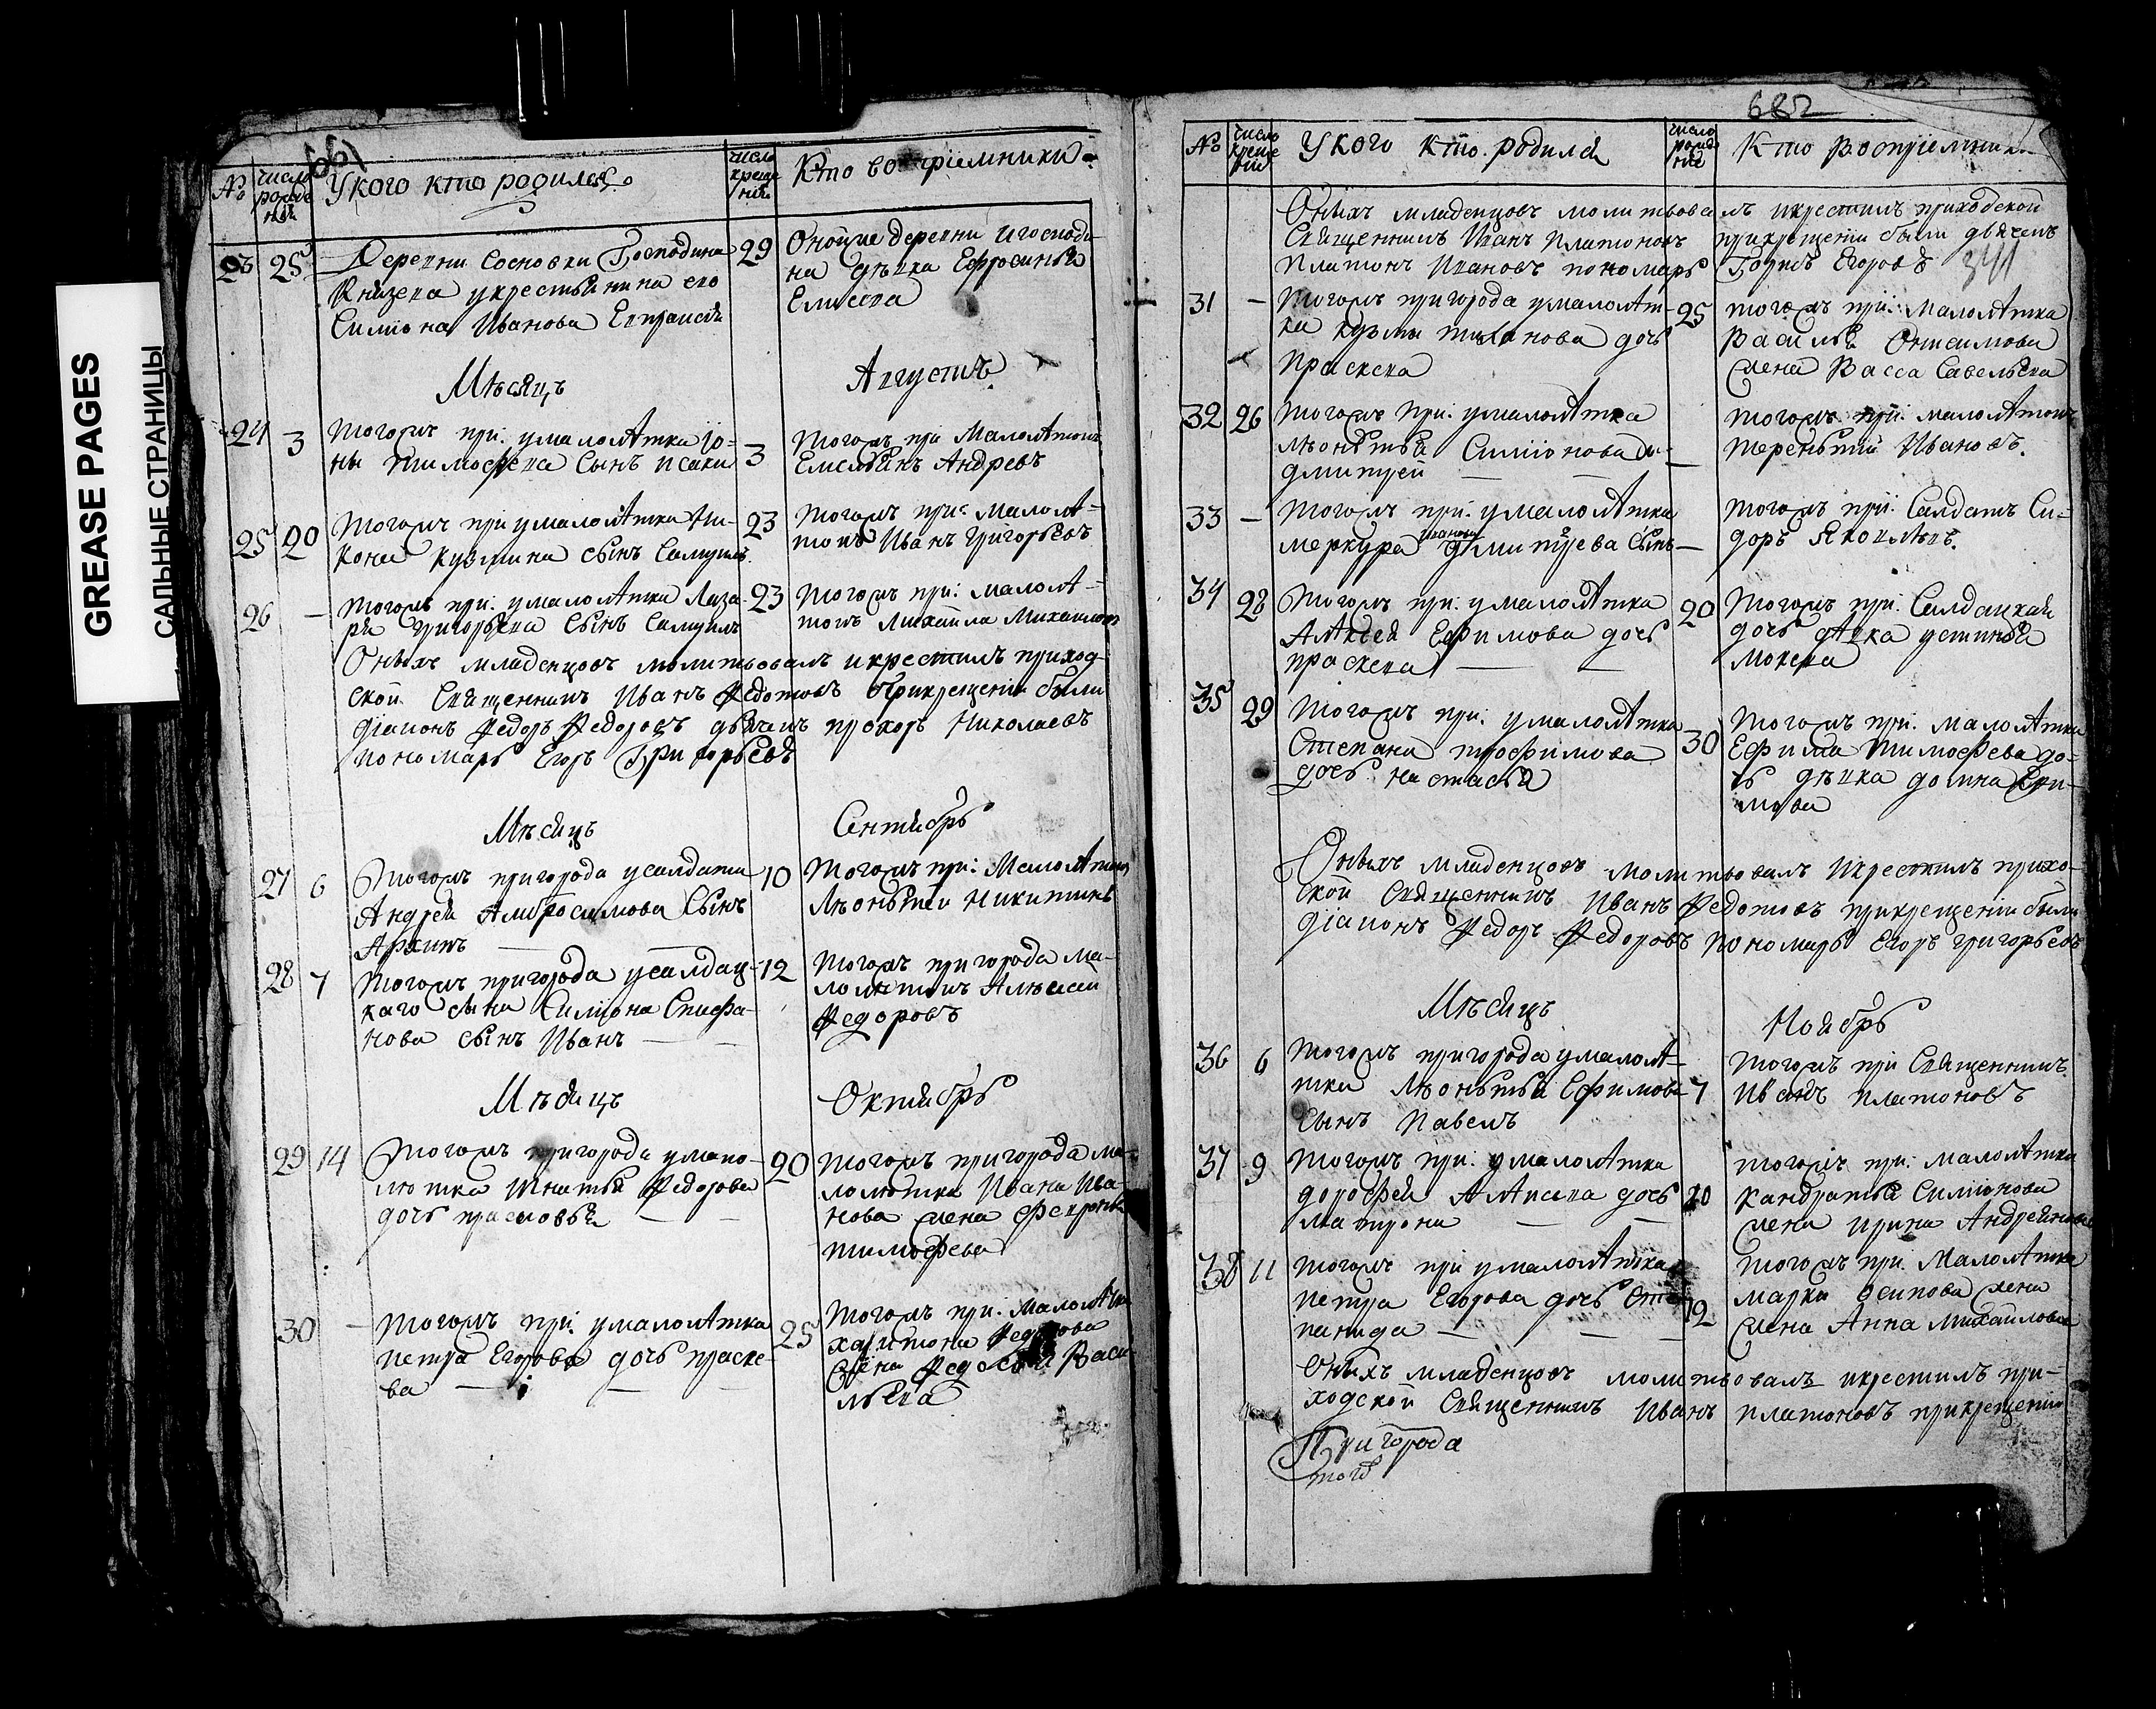 GREASE PAGES
САЛЬНЫЕ СТРАНИЦЫ
№
число рожде нія
У кого кто родилса
число креще нія
Кто восприемники
23 25 Деревни Сосновки Господина
Князева укрестьянина его
Симиона Иванова
29 Оной же деревни и господи
на дѣвка Ефросинья
Елисеева
Мѣсяцъ
Августъ
24 3 тогожъ при. умалолѣтка Ио-
ны тимофеева Сынъ исаки
3 тогожъ при Малолѣтокъ
Емельянъ Андревъ
25 20 тогожъ при умалолѣтка Ни-
кона кузмина сынъ Самуилъ
23 тогожъ при: малолѣ-
токъ Иванъ Григорьевъ
26 — тогожъ при. умалолѣтка Лаза-
ря григорьева Сынъ Самуилъ
23 тогожъ при: малолѣ-
токъ Михайла Михаиловъ
Оныхъ младенцовъ молитвовалъ икрестилъ приход-
ской Священникъ Иванъ Федотовъ прикрещеніи были
діаконъ Федоръ Федоровъ дьячекъ прохоръ Николаевъ
пономарь Егоръ Григорьевъ
Мѣсяцъ
Сентябрь
27 6 тогожъ пригорода усалдата
Андрея Амбросимова Сынъ
Архипъ —
10 тогожъ при: Малолѣтокъ
Лѣонътей Никитинъ
28 7 тогожъ пригорода усалдац-
каго сына Симиона Епифа-
нова сынъ Иванъ —
12 тогожъ пригорода ма-
лолѣтокъ Алѣксей
Федоровъ
Мѣсяцъ
Октябрь
29 14 тогожъ пригорода умало-
лѣтка Игнатья Федорова
дочь прасковья —
20 тогожъ пригорода ма-
лолѣтка Ивана Ива-
нова жена Феврония
тимофева
30 — тогожъ при. умалолѣтка
петра Егорова дочь праске-
ва —
25 тогожъ при. малолѣтка
харитона Федорова
жена Федосья Васи-
льева
682
№
число креще нія
У кого кто родилса
число рожде ніе
Кто Восприемники
Оныхъ младенцовъ молитвовалъ икрестилъ приходской
Священникъ Иванъ Платоновъ прикрещеніи были дьячекъ
Платонъ Ивановъ пономарь Борисъ Егоровъ
31 — тогожъ пригорода умалолѣт-
ка кузмы дочь
Праскева
25 тогожъ при: Малолѣтка
Василья Онисимова
жена Васса Савельева
32 26 тогожъ При. умалолѣтка
лѣонътья Симионова
дмитрей —
— тогожъ при. малолѣтокъ
терентий Ивановъ.
33 — тогожъ при. умалолѣтка
меркура дмитрева Сынъ
иванъ
— тогожъ при. Салдатъ Си-
доръ Яковлѣвъ.
34 28 тогожъ при. умалолѣтка
Алѣксея Ефимова дочь
праскева —
20 тогожъ при. Салдацкая
дочь дѣвка устинья
Мокева
35 29 тогожъ при. умалолѣтка
Степана трофимова
дочь настасья
30 тогожъ при. малолѣтка
Ефима Тимофева до-
чь дѣвка домна Ефи-
мова
Оныхъ младенцовъ молитвовалъ Икрестилъ прихо-
ской Священникъ Иванъ Федотовъ прикрещеніи были
діаконъ Федоръ Федоровъ пономарь Егоръ григорьевъ
Мѣсяцъ
Ноябрь
36 6 тогожъ пригорода умалолѣ-
тка Лѣонътья Ефимова
Сынъ Павелъ
7 тогожъ при Священникъ
Иванъ Платоновъ
37 9 тогожъ при. умалолѣтка
дорофея Алѣксева дочь
матрона —
10 тогожъ при: малолѣтка
Кандратья Симионова
жена ирина Андреянова
38 11 тогожъ при умалолѣтка
петра Егорова дочь Сте-
панида —
12 тогожъ при. Малолѣтка
марки осипова жена
жена Анна Михайлова
Оныхъ младенцовъ молитвовалъ икрестилъ при-
ходской Священникъ Иванъ Платоновъ прикрещеніи
Пригорода
тогѡ